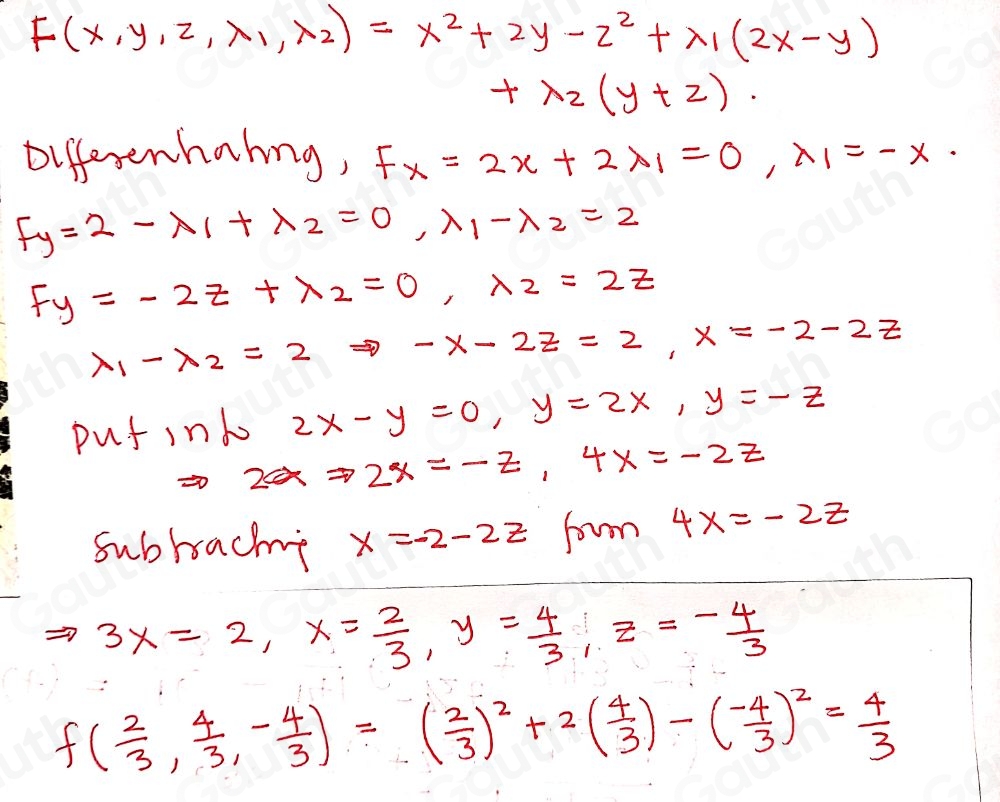 F(x, y, z, λ1, λ2) = x² + 2y - z² + λ1(2x - y)
+ λ2(y + z).
Differentiating, Fx = 2x + 2λ1 = 0, λ1 = -x.
Fy = 2 - λ1 + λ2 = 0, λ1 - λ2 = 2
Fy = -2z + λ2 = 0, λ2 = 2z
λ1 - λ2 = 2 ⇒ -x - 2z = 2, x = -2 - 2z
Put into 2x - y = 0, y = 2x, y = -z
⇒ ⇒ 2x = -z, 4x = -2z
Subtracting x = -2 - 2z from 4x = -2z
⇒ 3x = 2, x = 2/3, y = 4/3, z = -4/3
f(2/3, 4/3, -4/3) = (2/3)² + 2(4/3) - (-4/3)² = 4/3